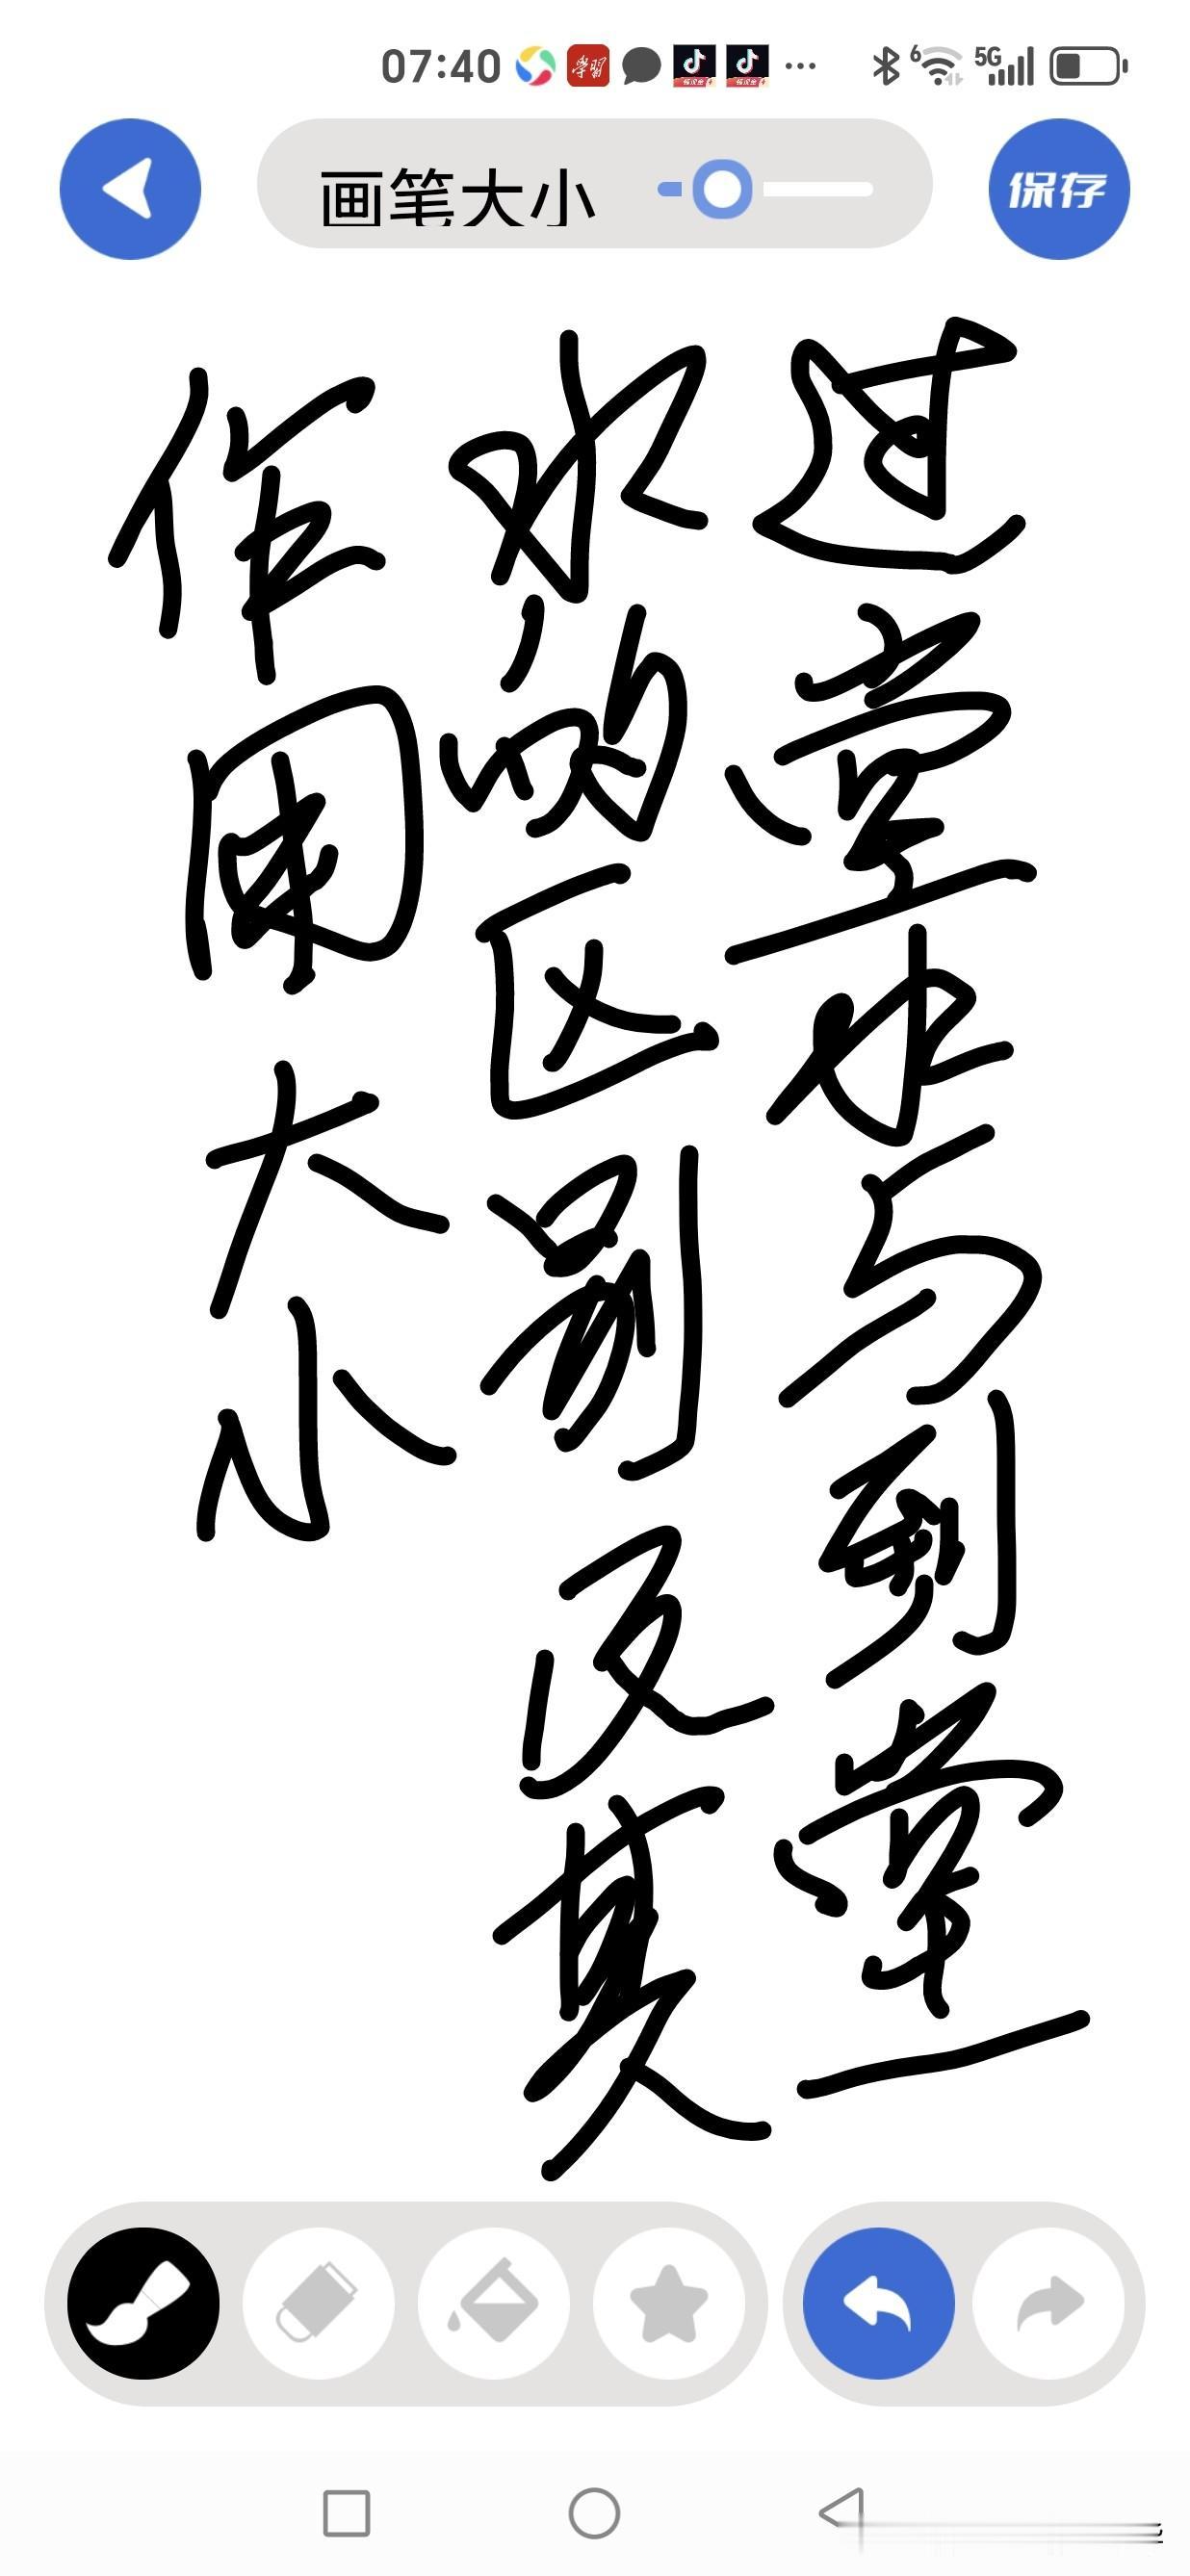 07:40
5G
画笔大小
保存
过堂水与到堂
水的区别及其
作用大小